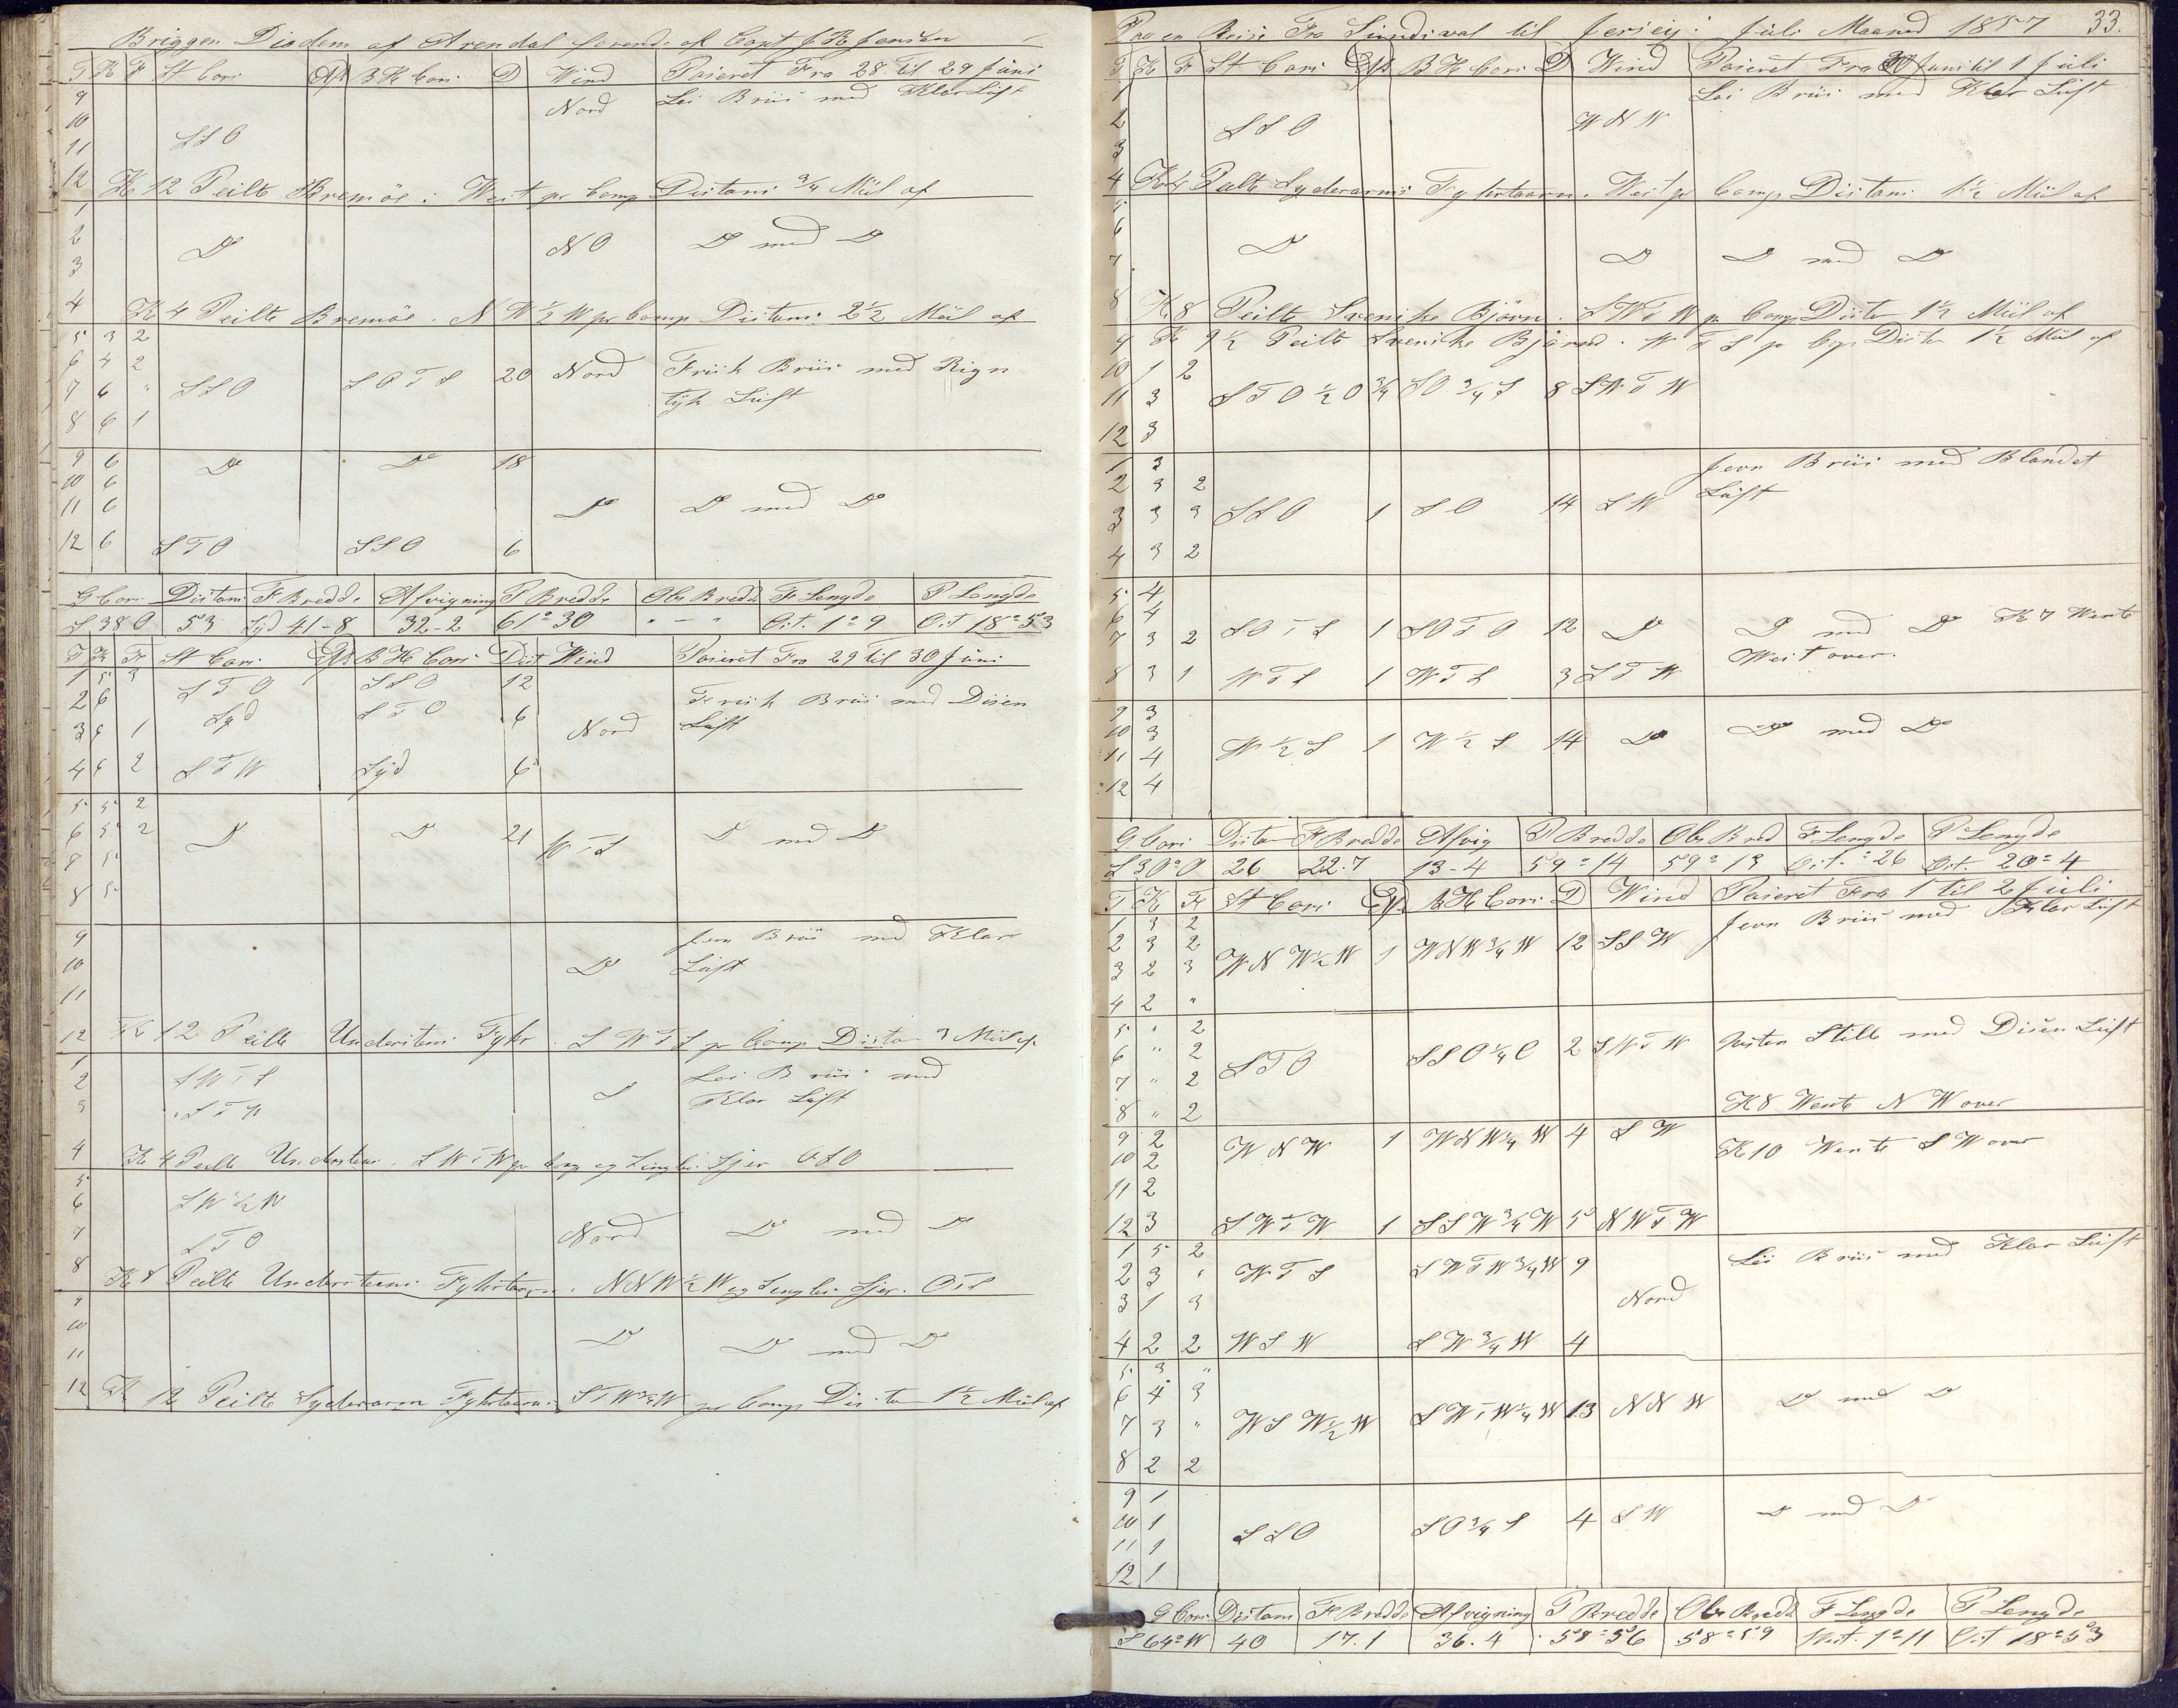 Briggen Diadem af Arendal förend: af Capt J K Jensen
T K F St Cors Afd B H Cors D Wind Paseret Fra 28 til 29 Juni
9 Nord Lei Briis med Klar Luft
10 SSO
11
12 Kl 12 Peilte Bremöe i West pr Comp Distans 3/4 Miil af
1
2 Do NO Do med Do
3
4 Kl 4 Peilte Bremöe. NW 1/2 W pr Comp Distans 2 1/2 Miil af
5 3 2
6 4 2 Nord Frisk Briis med Rign
7 6 " SSO SOTS 20 tÿk Luft
8 6 1
9 6 Do Do 18
10 6
11 6 Do Do med Do
12 6 STO SSO 6
G Cors Distans F Bredde Afvigning P Bredde Obs Bredde F Lengde P Lengde
S 38 O 53 Syd 41-8 32-2 61° 30 " - " Ost. 1° 9 Ost 18° 53
T K F St Cors Afd B H Cors Dist Wind Paseret Fra 29 til 30 Juni
1 5 3 STO SSO 12
2 6 Syd STO 6 Frisk Briis med Disen
3 6 1 Nord Luft
4 6 2 STW Syd 6
5 5 2
6 5 2 Do Do 21 WTS Do med Do
8 5
8 5
9 Jevn Briis med Klar
10 Do Luft
11
12 Kl 12 Peilte Understens Fyhr. SWTS pr Comp Distan 3 Miil af
1
2 SWTS S Lei Briis med
3 STW Klar Luft
4 Kl 4 Peilte Understens. SWTW pr Comp og Singles Sjer OSO
5
6 SW 1/2 W
7 STO Nord Do med Do
8 Kl 8 Peilte Understeens Fyhrtaarn. NNW 1/2 W og Sengles Sjer. OTS
9
10 Do Do med Do
11
12 Kl 12 Peilte Syderarm Fyhrtaarn. STW 3/4 W pr Comp Distan 1 1/2 Miil af
Paa en Reise Fra Sundsval til Jersey: Juli Maaned 1857 33.
T K F St Cors Afd B H Cors D Wind Paseret Fra 30 Juni til 1 Juli
1 Lei Briis med Klar Luft
2 SSO WNW
3
4 Kl 4 Peilte Syderarms Fyhrtaarn. West pr Comp Distans 1 1/2 Miil af
5
6 Do Do Do med Do
7
8 Kl 8 Peilte Svenske Björn. SWTW pr Comp Distan 1 1/2 Miil af
9 Kl 9 1/2 Peilte Svenske Björn. WTS pr Cop Distan 1 1/2 Miil af
10 1 2
11 3 STO 1/2 O 3/4 SO 3/4 S 8 SWTW
12 3
1 3 Jevn Briis med Blandet
2 3 2 Luft
3 3 3 SSO 1 SO 14 SW
4 3 2
5 4
6 4
7 3 2 SOTS 1 SOTO 12 Do Do med Do Kl 7 Wente
West over.
8 3 1 WTS 1 WTS 3 STW
9 3
10 3 W 1/2 S 1 W 1/2 S 14 Do Do med Do
11 4
12 4
G Cors Distan F Bredde Afvig P Bredde Obs Bred F Lengde P Lengde
S 30° O 26 22.7 13-4 59° 14 59° 13 Ost. ° 26 Ost. 20° 4
T K F St Cors Afd B H Cors D Wind Paseret Fra 1 til 2 Juli
1 3 2 Jevn Briis med Klar Luft
2 3 2 WNW 1/2 W 1 WNW 3/4 W 12 SSW
3 2 3
4 2 "
5 " 2 Nesten Stille med Disen Luft
6 " 2 STO SSO 1/4 O 2 SWTW
7 " 2
8 " 2 Kl 8 Wente NW over
9 2 WNW 1 WNW 1/4 W 4 SW
10 2 Kl 10 Wente SW over
11 2
12 3 SWTW 1 SSW 3/4 W 5 NWTW
1 5 2 Lei Briis med Klar Luft
2 3 " WTS SWTW 3/4 W 9
3 1 3 Nord
4 2 2 WSW SW 3/4 W 4
5 3 "
6 4 3 Do med Do
7 3 " WSW 1/2 W SWTW 1/4 W 13 NNW
8 2 2
9 1
10 1 SSO SO 3/4 S 4 SW Do med Do
11 1
12 1
G Cors Distans F Bredde Afvigning P Bredde Obs Bredd F Lengde P Lengde
S 64° W 40 17.1 36.4 58° 56 58° 59 West. 1° 11 Ost 18° 53